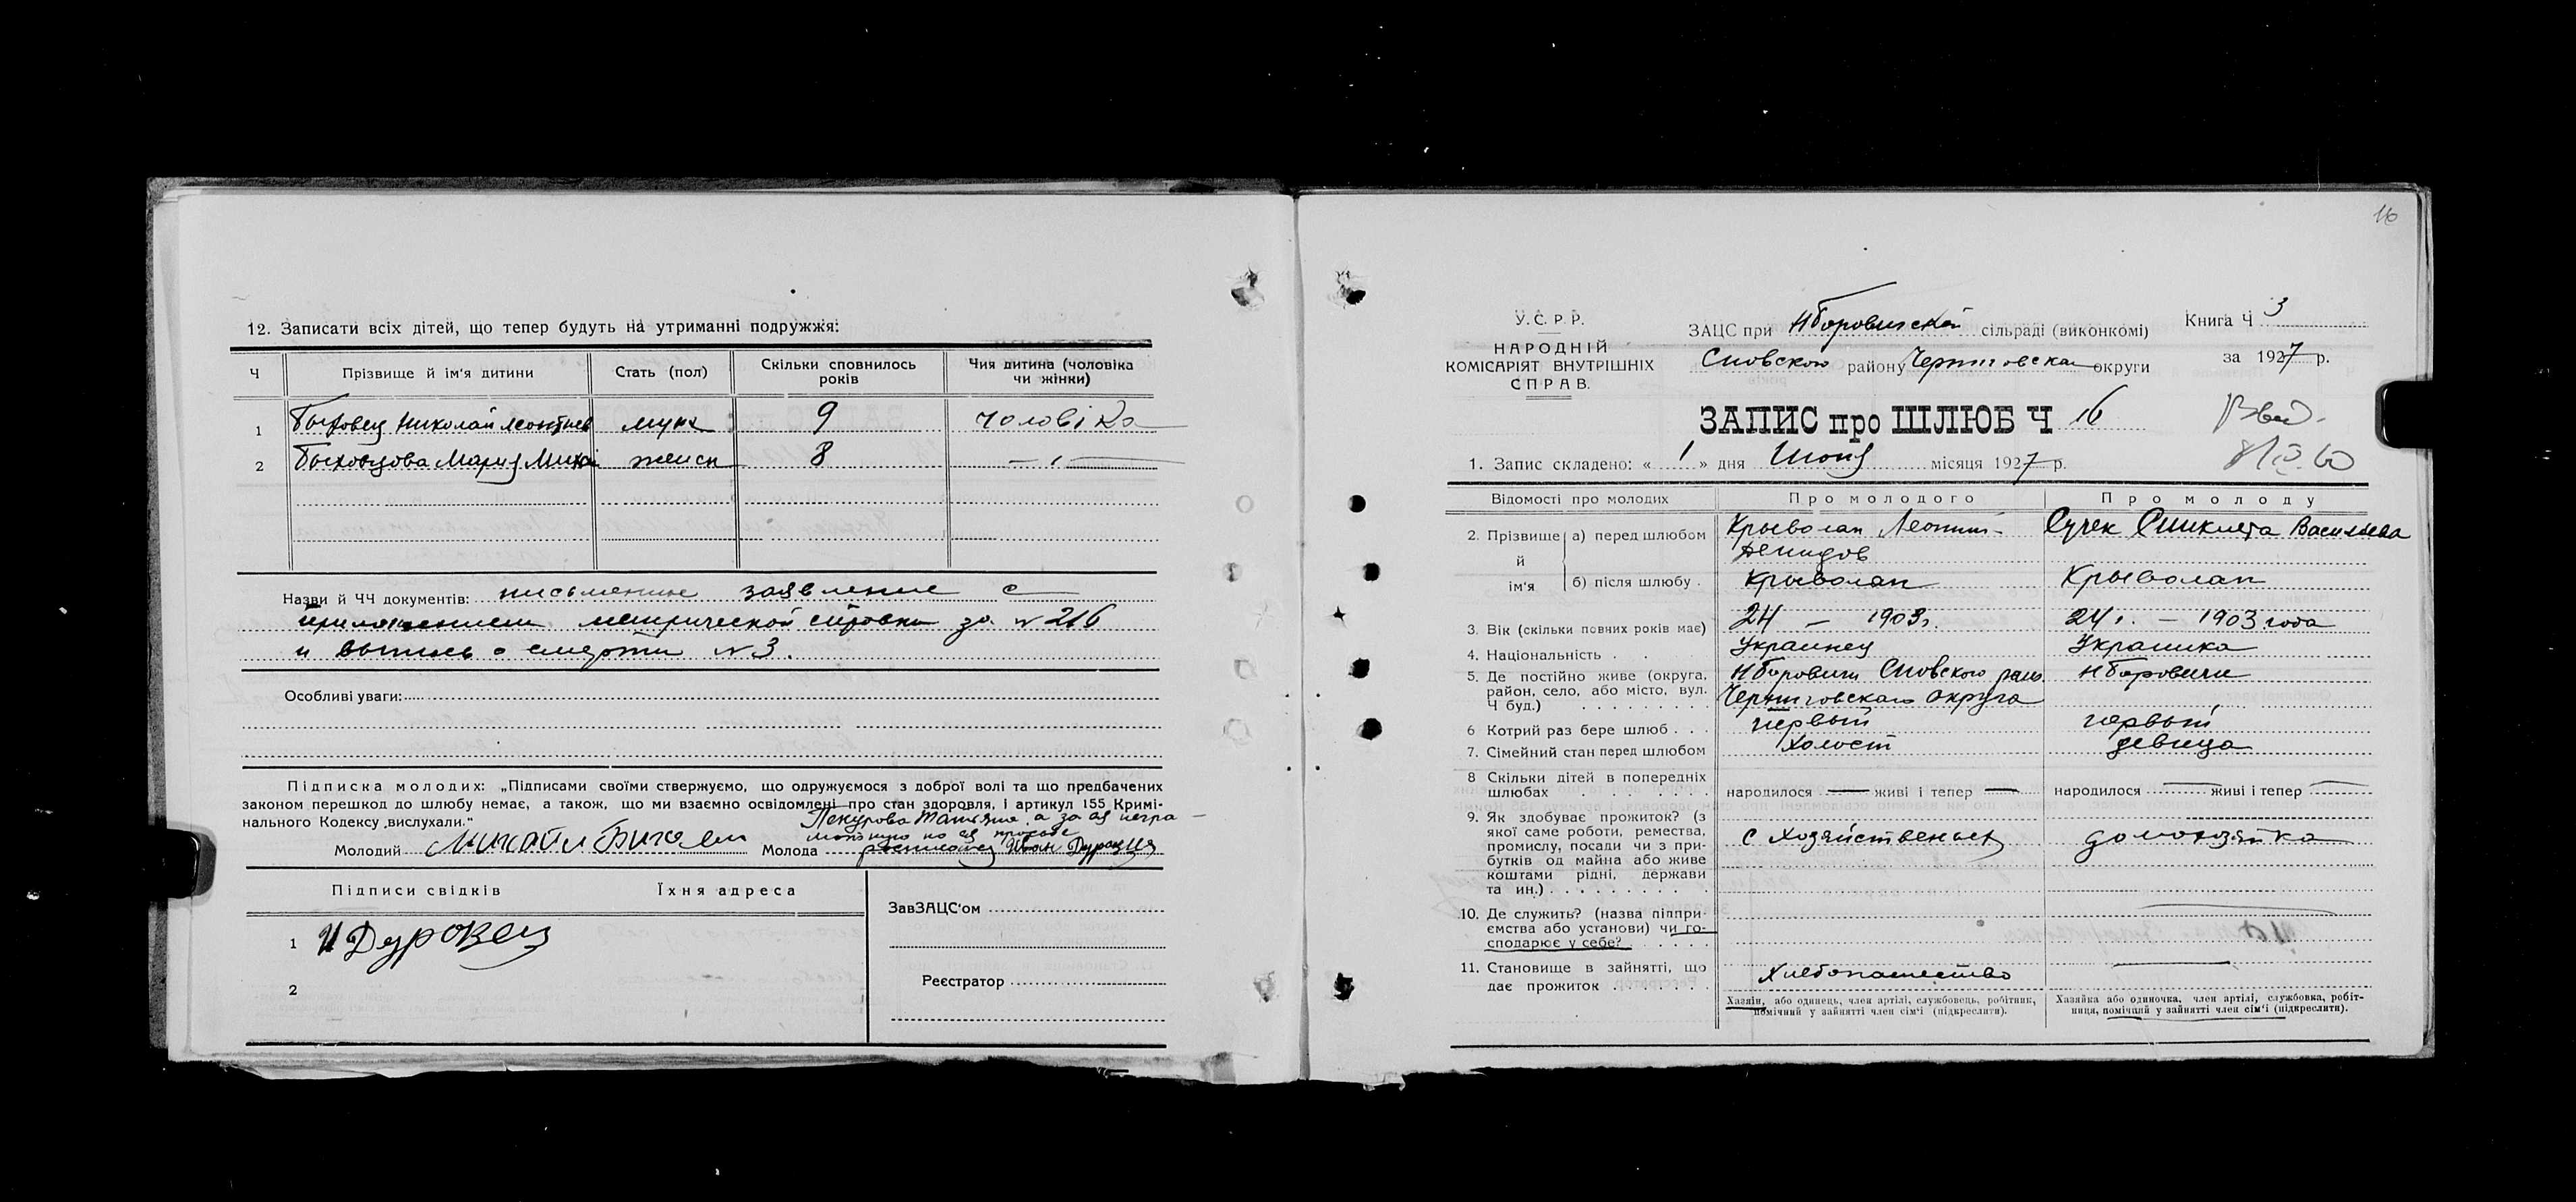 12. Записати всіх дітей, що тепер будуть на утриманні подружжя:
Ч Прізвище й ім'я дитини Стать (пол) Скільки сповнилось років Чия дитина (чоловіка чи жінки)
1 Быховец Николай муж 9 чоловіка
2 Быховцова Мария Миха женск 8 — „ —
Назви й ЧЧ документів: письменные заявление с
приложением метрической справки за №216
и выпись о смерти №3.
Особливі уваги:
Підписка молодих: „Підписами своїми ствержуємо, що одружуємося з доброї волі та що предбачених
законом перешкод до шлюбу немає, а також, що ми взаємно освідомлені про стан здоровля, і артикул 155 Кримі-
нального Кодексу „вислухали."
Пекурова Татьяна, а за ея негра-
мотную по ея просьбе
Молодий Михаил Молода расписался Иван Дуровец
Підписи свідків Їхня адреса
1 И Дуровец
2
ЗавЗАЦС'ом
Реєстратор
16
У.С.Р.Р.
НАРОДНІЙ
КОМІСАРІЯТ ВНУТРІШНІХ
СПРАВ.
ЗАЦС при НБоровичской сільраді (виконкомі)
Сновского району Черниговска округи
Книга Ч 3
за 1927 р.
ЗАПИС про ШЛЮБ Ч 16
1. Запис складено: « 1 » дня Июня місяця 1927 р.
Відомості про молодих Про молодого Про молоду
2. Прізвище й ім'я а) перед шлюбом Крыволап Леонтий Демидов Сучек Синклета Васильева
б) після шлюбу Крыволап Крыволап
3. Вік (скільки повних років має) 24 — 1903г. 24г. — 1903 года
4. Національність Украинец Украинка
5. Де постійно живе (округа, район, село, або місто, вул. Ч буд.) НБоровичи Сновского райо Черниговскаго округа НБоровичи
6 Котрий раз бере шлюб первый первый
7. Сімейний стан перед шлюбом холост девица
8 Скільки дітей в попередніх шлюбах народилося — живі і тепер — народилося — живі і тепер —
9. Як здобуває прожиток? (з якої саме роботи, ремества, промислу, посади чи з прибутків од майна або живе коштами рідні, держави та ин.) С Хозяйственных домохзяйка
10. Де служить? (назва підприємства або установи) чи господарює у себе?
11. Становище в зайнятті, що дає прожиток Хлебопашество
Хазяїн, або одинець, член артілі, службовець, робітник, помічний у зайнятті член сім'ї (підкреслити).
Хазяйка або одиночка, член артілі, службовка, робітниця, помічний у зайнятті член сім'ї (підкреслити).